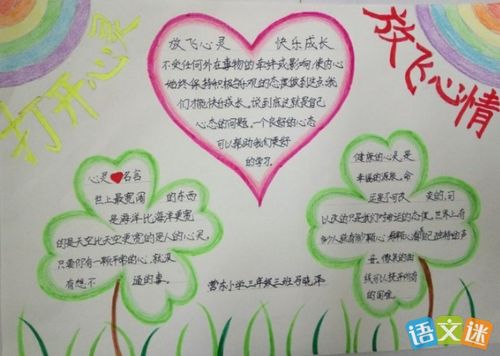 打开心灵
放飞心情
放飞心灵 快乐成长
不受任何外在事物的牵绊或影响,使内心
始终保持积极乐观的态度做到这点我
们才能快乐成长。说到底这就是自己
心态的问题。一个良好的心态
可以帮助我们更好
的学习。
心灵 名言
世上最宽阔 的东西
是海洋比海洋更宽
的是天空比天空更宽的是人的心灵。
只要你有一颗平常的心,就没
有想不 通的事。
健康的心灵是
幸福的源泉。命
运是不可改 变的,可
以改的只是我们对命运的态度。世界上有
多少人就有多少颗心 每颗心都有自己独特的声
音。微笑的曲
线可以抚平所有
的困惑。
营东小学三年级三班
语文迷